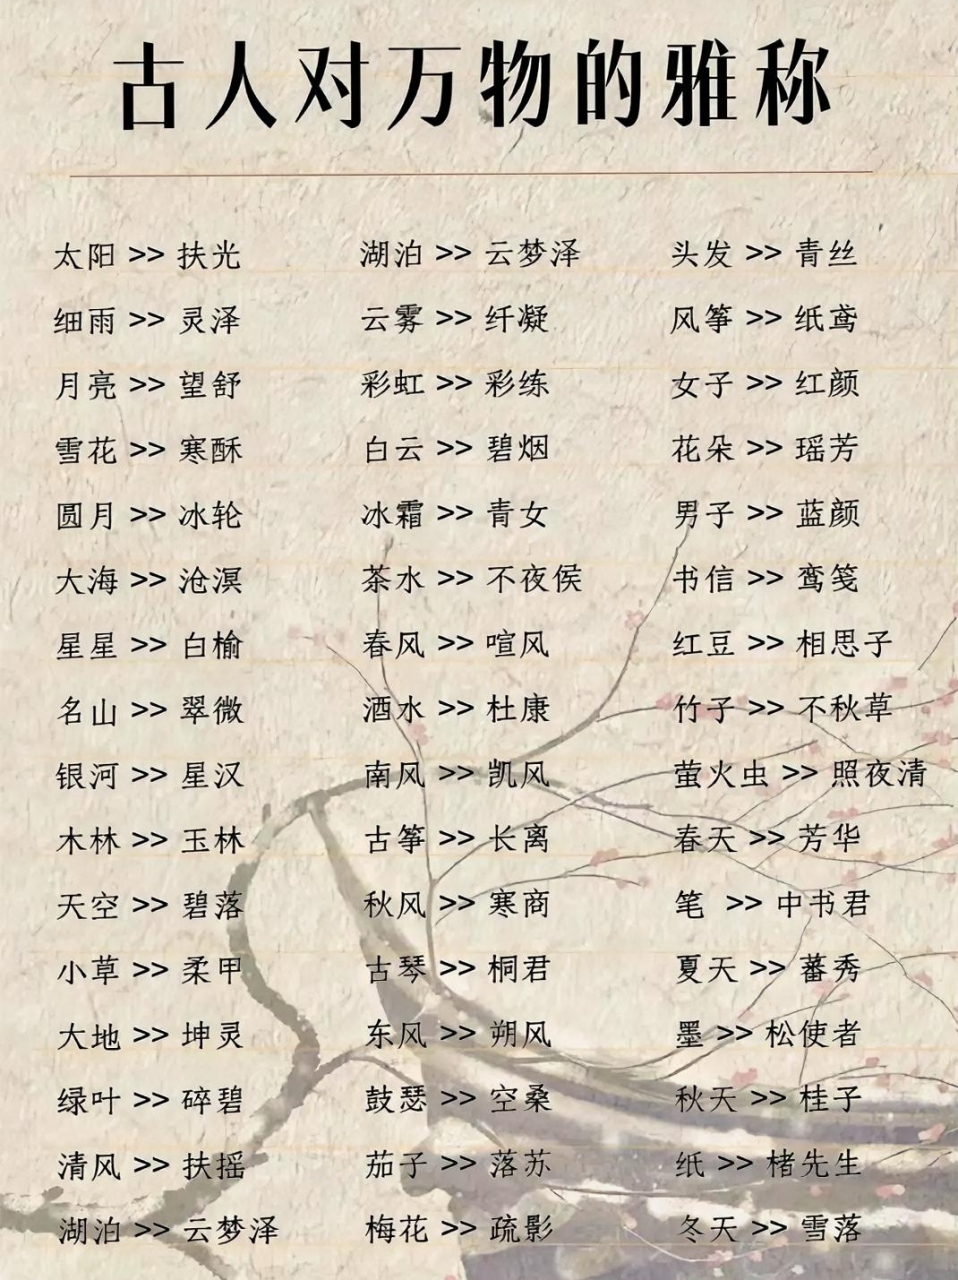 古人对万物的雅称
太阳 >> 扶光 湖泊 >> 云梦泽 头发 >> 青丝
细雨 >> 灵泽 云雾 >> 纤凝 风筝 >> 纸鸢
月亮 >> 望舒 彩虹 >> 彩练 女子 >> 红颜
雪花 >> 寒酥 白云 >> 碧烟 花朵 >> 瑶芳
圆月 >> 冰轮 冰霜 >> 青女 男子 >> 蓝颜
大海 >> 沧溟 茶水 >> 不夜侯 书信 >> 鸾笺
星星 >> 白榆 春风 >> 喧风 红豆 >> 相思子
名山 >> 翠微 酒水 >> 杜康 竹子 >> 不秋草
银河 >> 星汉 南风 >> 凯风 萤火虫 >> 照夜清
木林 >> 玉林 古筝 >> 长离 春天 >> 芳华
天空 >> 碧落 秋风 >> 寒商 笔 >> 中书君
小草 >> 柔甲 古琴 >> 桐君 夏天 >> 蕃秀
大地 >> 坤灵 东风 >> 朔风 墨 >> 松使者
绿叶 >> 碎碧 鼓瑟 >> 空桑 秋天 >> 桂子
清风 >> 扶摇 茄子 >> 落苏 纸 >> 楮先生
湖泊 >> 云梦泽 梅花 >> 疏影 冬天 >> 雪落